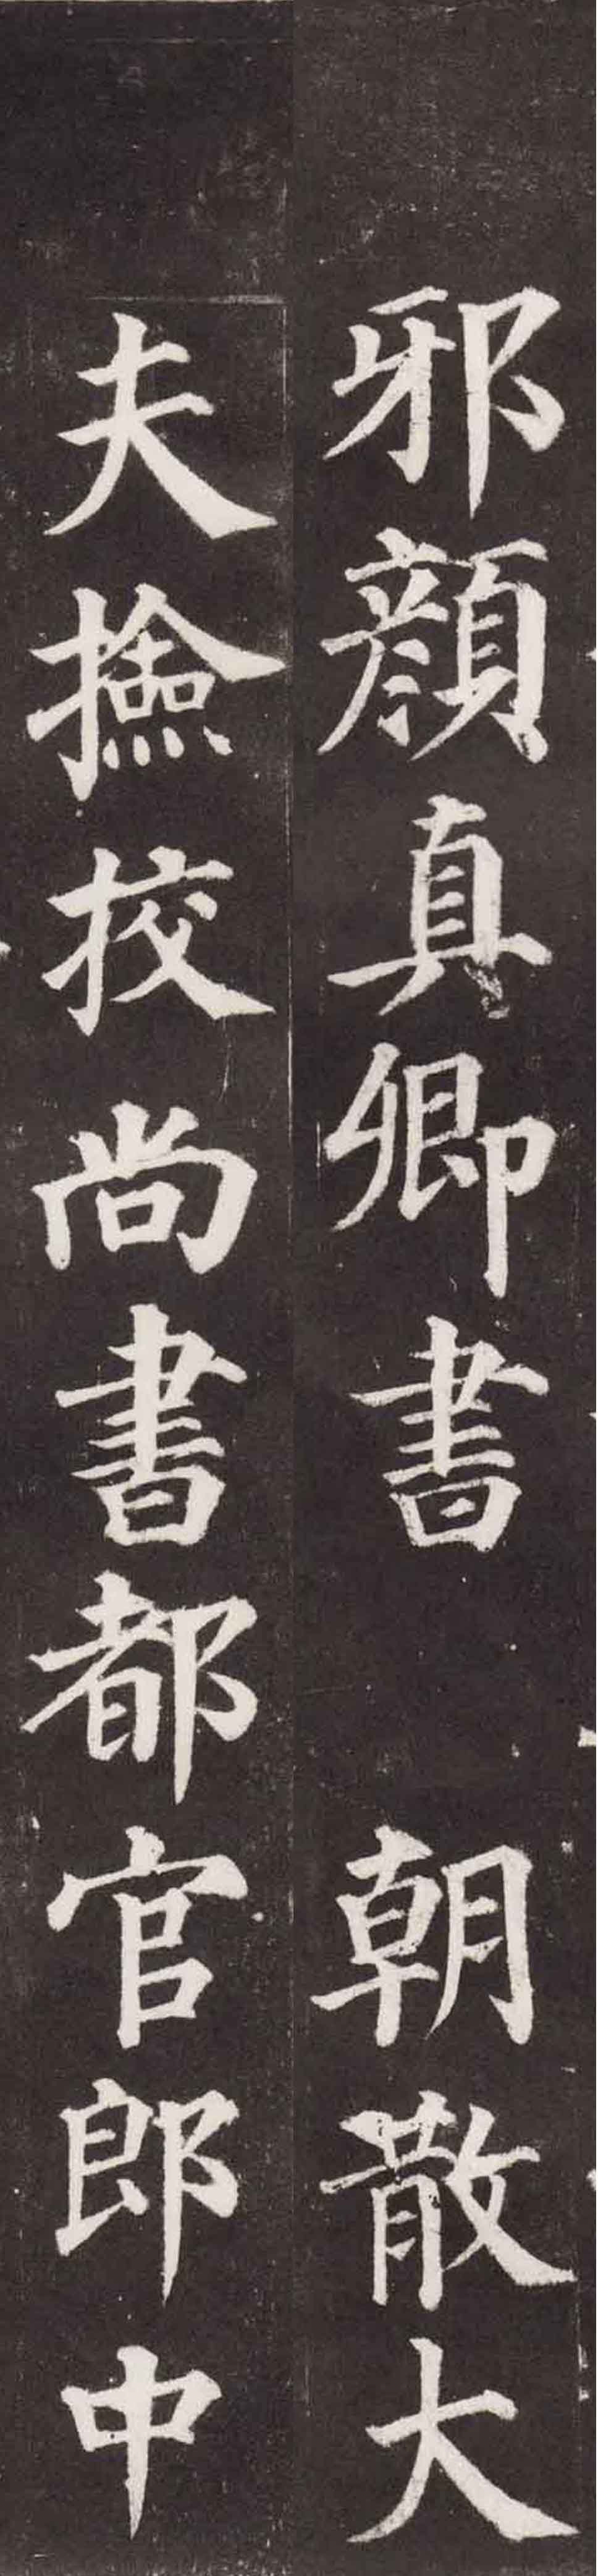 邪顏真卿書 朝散大
夫撿挍尚書都官郎中